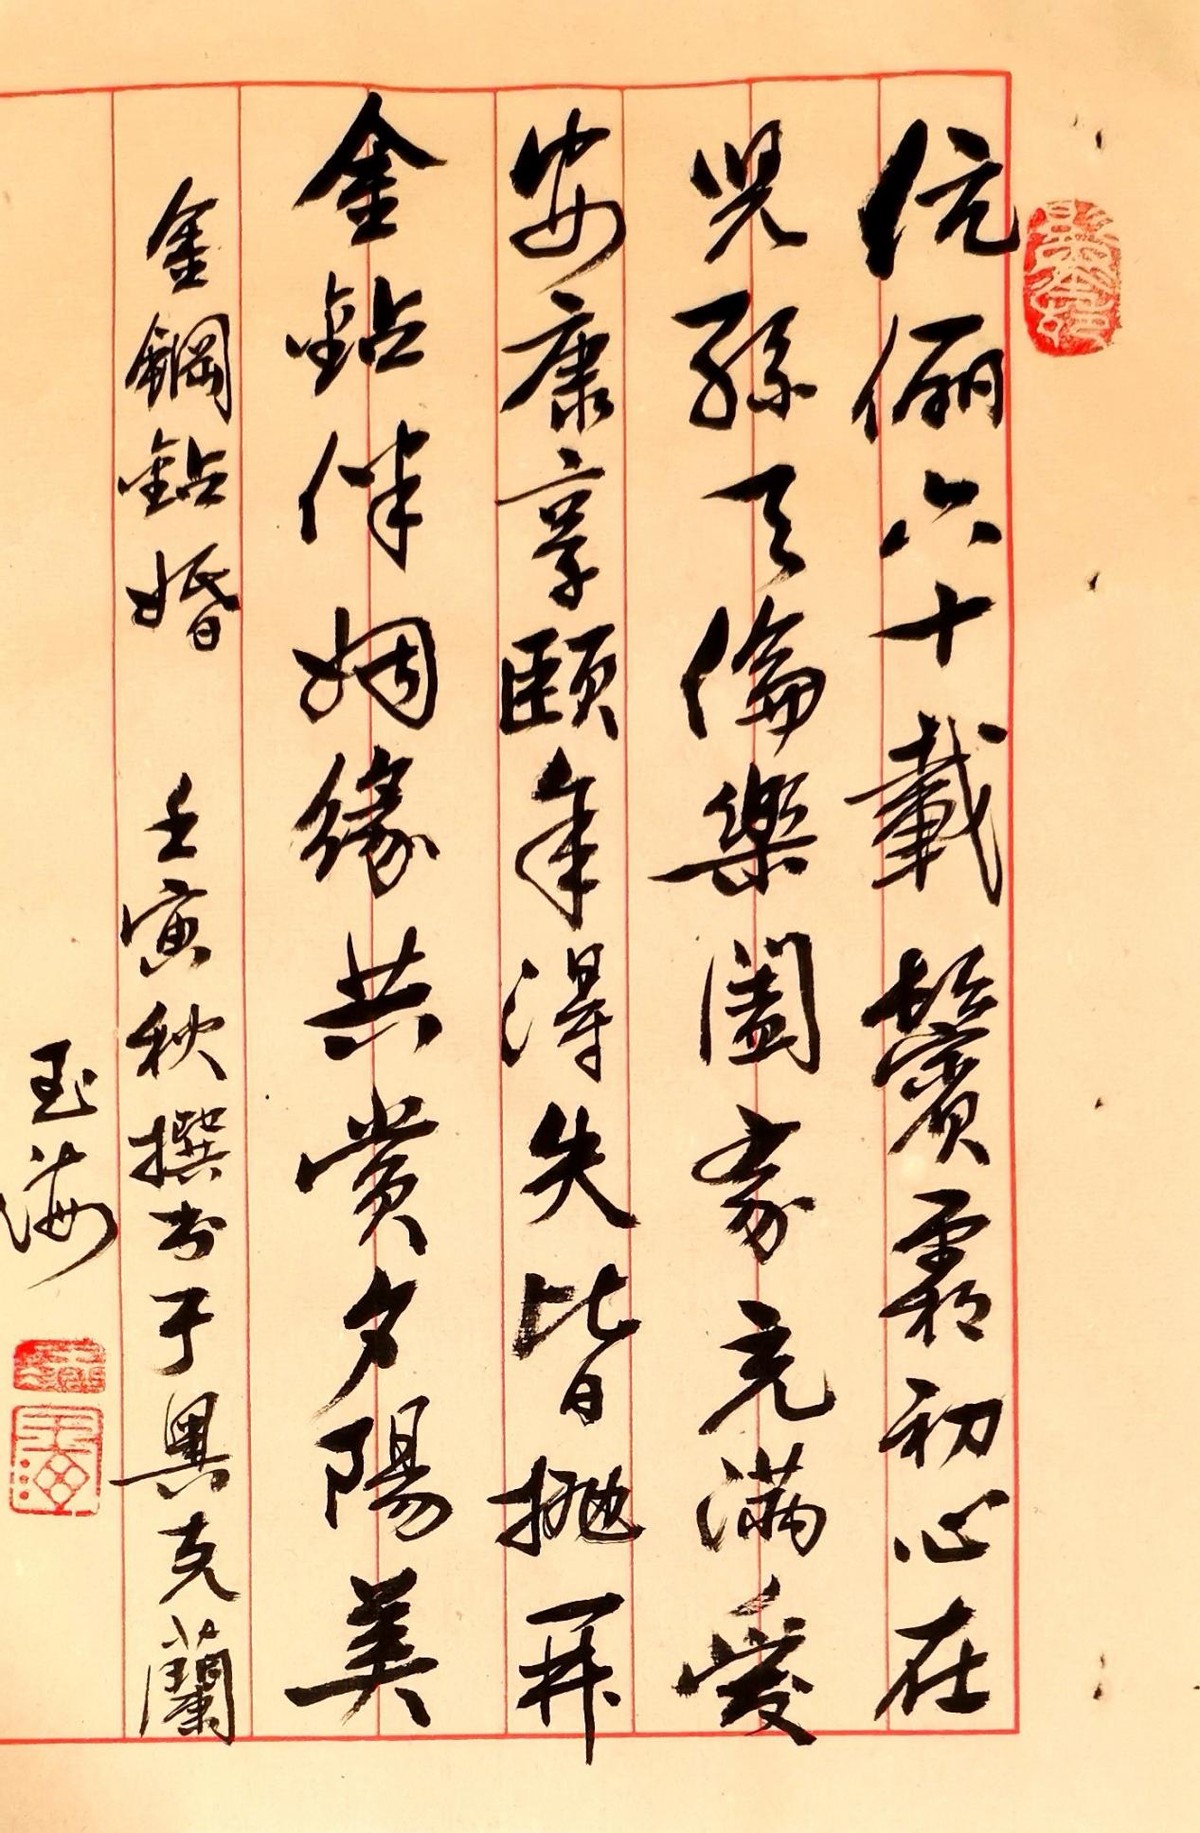 伉儷六十載鬢霜初心在
兒孫天倫樂闔家充滿愛
安康享頤年得失皆拋開
金鉆伴姻緣共賞夕陽美
金鋼鉆婚 壬寅秋撰书于奧克蘭
玉海